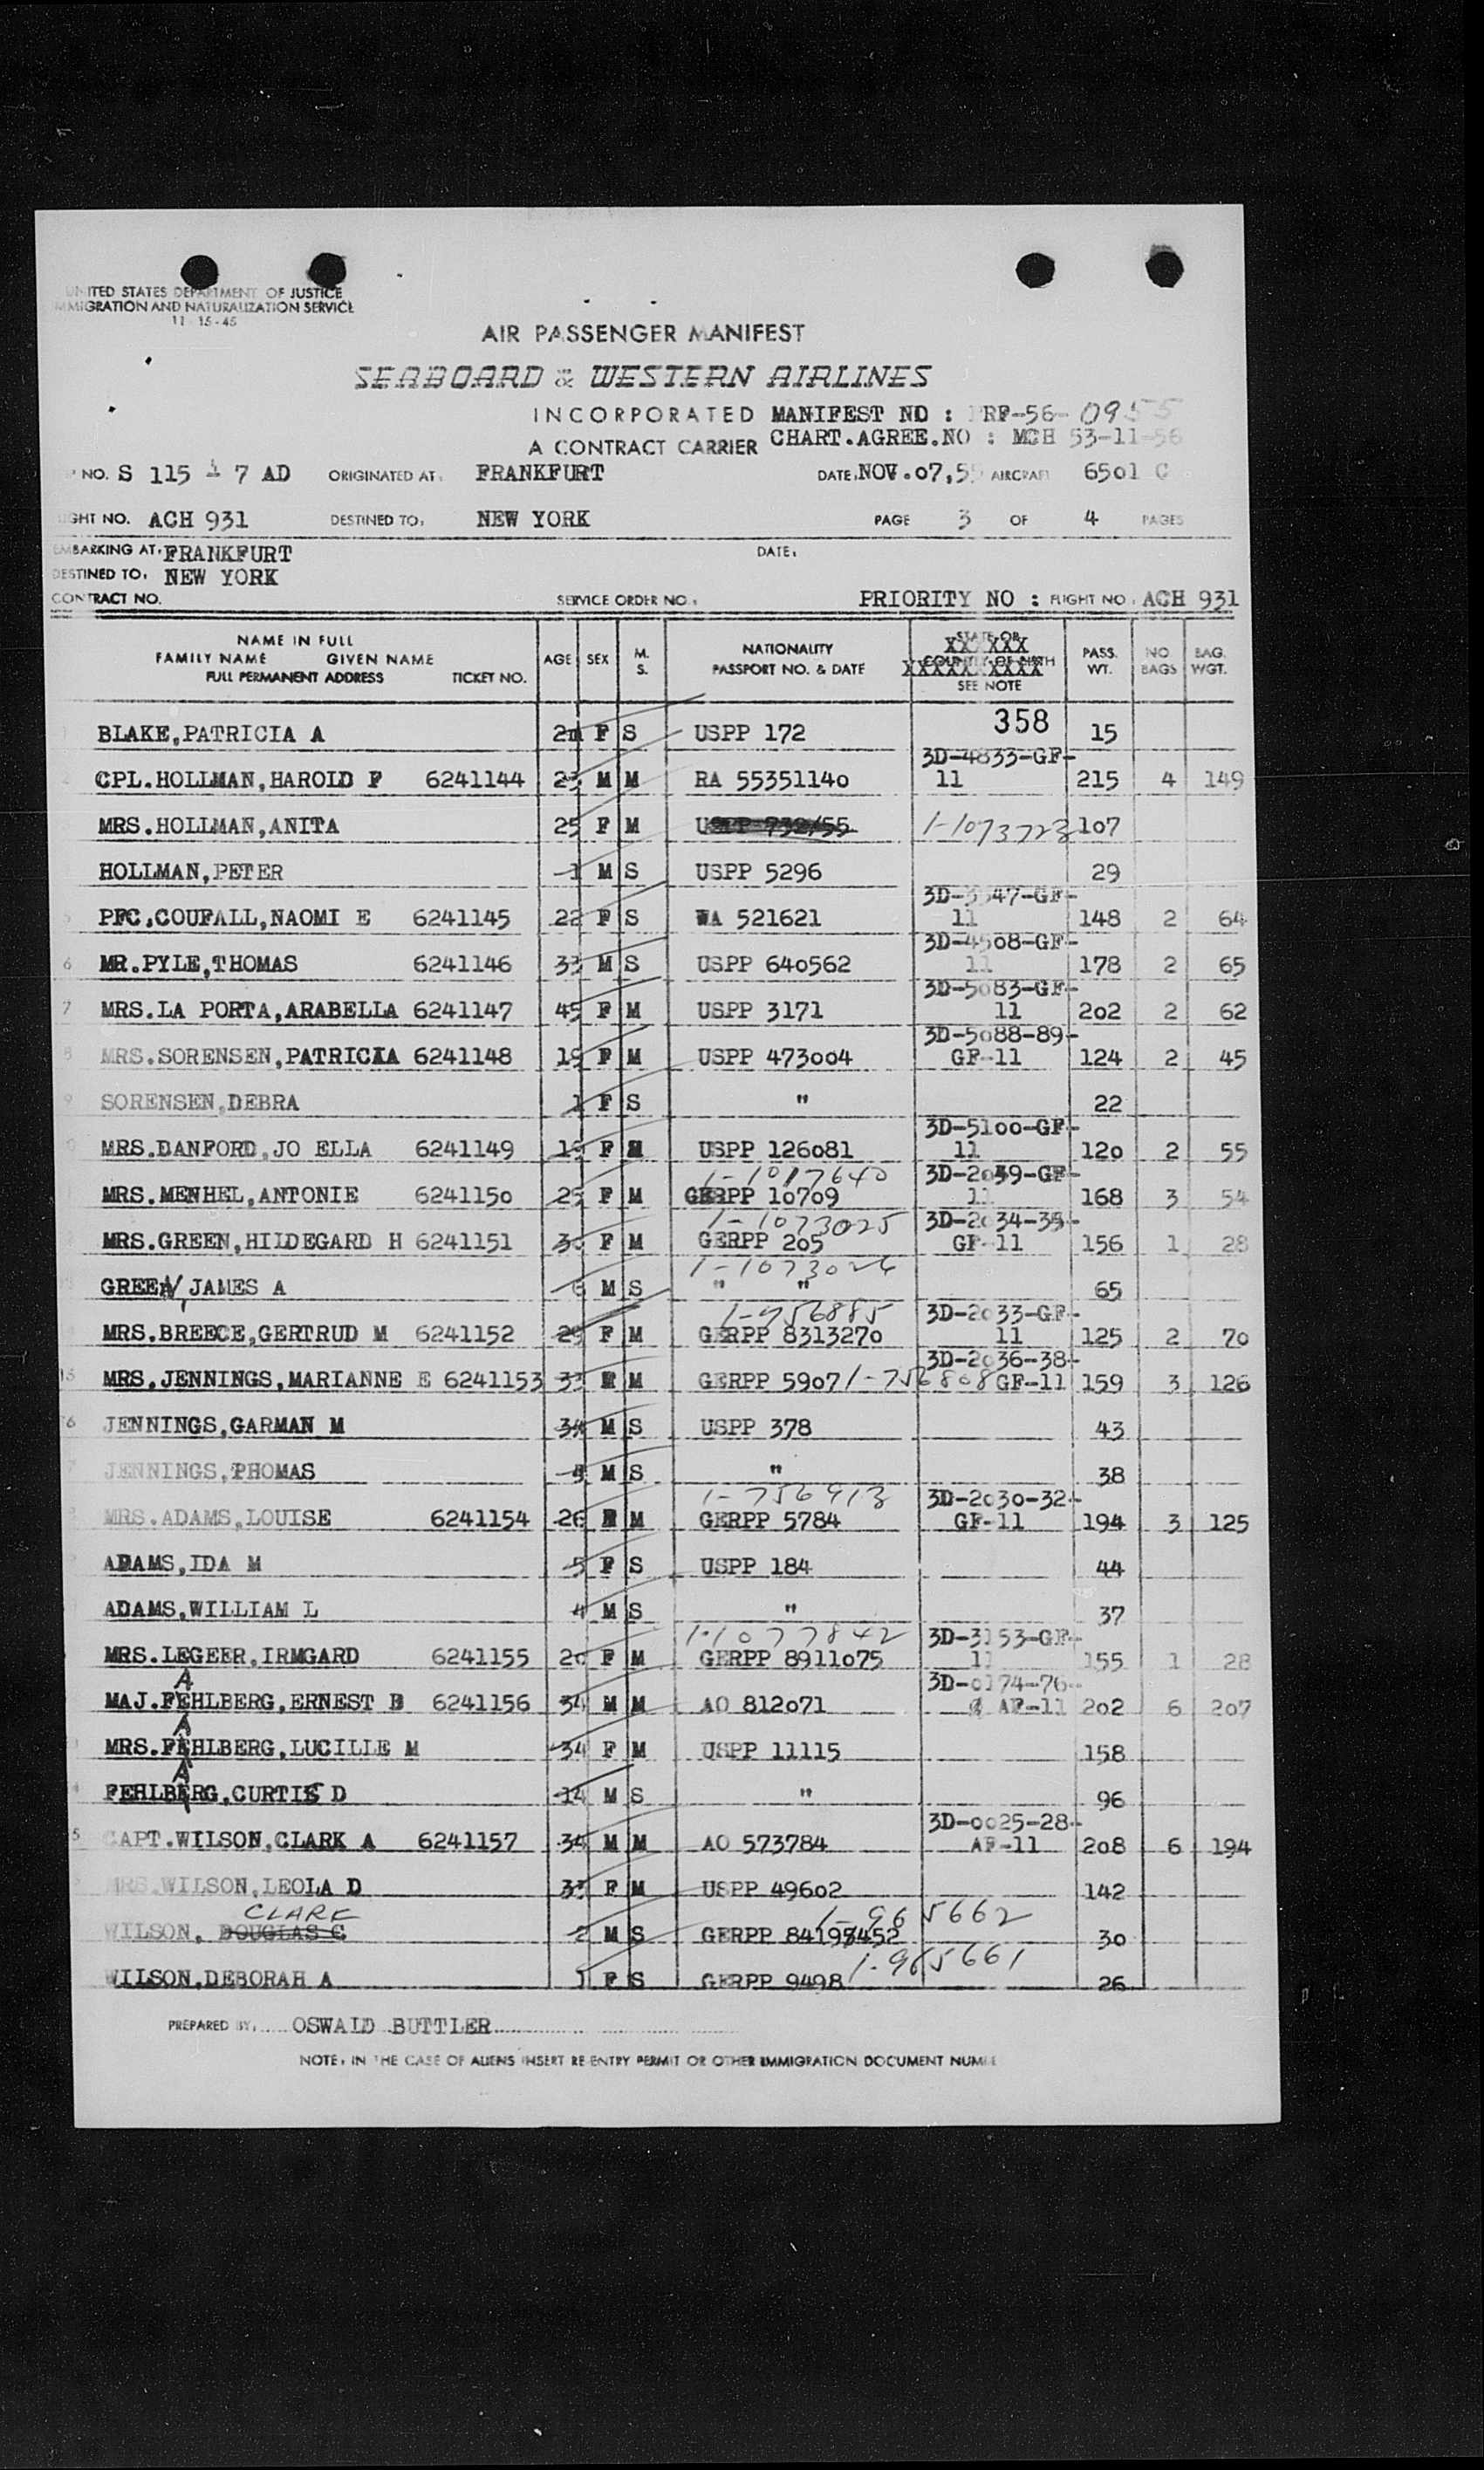 UNITED STATES DEPARTMENT OF JUSTICE
IMMIGRATION AND NATURALIZATION SERVICE
11-15-45
AIR PASSENGER MANIFEST
SEABOARD & WESTERN AIRLINES
INCORPORATED MANIFEST NO : FRF-56-0955
A CONTRACT CARRIER CHART.AGREE.NO : MCH 53-11-56
NO. S 115 - 7 AD ORIGINATED AT: FRANKFURT DATE: NOV.07,55 AIRCRAFT 6501 C
FLIGHT NO. ACH 931 DESTINED TO: NEW YORK PAGE 3 OF 4 PAGES
EMBARKING AT: FRANKFURT DATE:
DESTINED TO: NEW YORK
CONTRACT NO. SERVICE ORDER NO.: PRIORITY NO : FLIGHT NO. ACH 931
NAME IN FULL
FAMILY NAME GIVEN NAME
FULL PERMANENT ADDRESS TICKET NO. AGE SEX M. S. NATIONALITY PASSPORT NO. & DATE STATE OR COUNTRY OF BIRTH SEE NOTE PASS. WT. NO BAGS BAG. WGT.
358
BLAKE,PATRICIA A F S USPP 172 15
3D-4833-GF-
CPL.HOLLMAN,HAROLD F 6241144 23 M M RA 55351140 11 215 4 149
MRS.HOLLMAN,ANITA 25 F M 1-1073723 107
HOLLMAN,PETER 1 M S USPP 5296 29
3D-3547-GF-
5 PFC.COUFALL,NAOMI E 6241145 22 F S WA 521621 11 148 2 64
3D-4508-GF-
6 MR.PYLE,THOMAS 6241146 33 M S USPP 640562 11 178 2 65
3D-5083-GF-
7 MRS.LA PORTA,ARABELLA 6241147 45 F M USPP 3171 11 202 2 62
3D-5088-89-
8 MRS.SORENSEN,PATRICIA 6241148 19 F M USPP 473004 GF-11 124 2 45
9 SORENSEN,DEBRA 1 F S " 22
3D-5100-GF-
MRS.DANFORD,JO ELLA 6241149 19 F M USPP 126081 11 120 2 55
1-1017640 3D-2039-GF-
MRS.MENHEL,ANTONIE 6241150 25 F M GERPP 10709 11 168 3 54
1-1073025 3D-2034-35-
MRS.GREEN,HILDEGARD H 6241151 30 F M GERPP 205 GF-11 156 1 28
1-1073026
GREEN,JAMES A 6 M S " " 65
1-756885 3D-2033-GF-
MRS.BREECE,GERTRUD M 6241152 29 F M GERPP 8313270 11 125 2 70
3D-2036-38-
15 MRS.JENNINGS,MARIANNE E 6241153 33 F M GERPP 5907 1-756808 GF-11 159 3 126
6 JENNINGS,GARMAN M M S USPP 378 43
JENNINGS,THOMAS M S " 38
1-756913 3D-2030-32-
MRS.ADAMS,LOUISE 6241154 26 F M GERPP 5784 GF-11 194 3 125
ADAMS,IDA M 5 F S USPP 184 44
ADAMS,WILLIAM L 4 M S " 37
1-1077842 3D-3153-GF-
MRS.LEGEER,IRMGARD 6241155 20 F M GERPP 8911075 11 155 1 28
A 3D-0174-76-
MAJ.FEHLBERG,ERNEST B 6241156 34 M M AO 812071 AF-11 202 6 207
A
MRS.FEHLBERG,LUCILLE M 34 F M USPP 11115 158
A
FEHLBERG,CURTIS D 14 M S " 96
3D-0025-28-
5 CAPT.WILSON,CLARK A 6241157 34 M M AO 573784 AF-11 208 6 194
MRS.WILSON,LEOLA D 33 F M USPP 49602 142
CLARE 1-965662
WILSON, DOUGLAS C 2 M S GERPP 84198452 30
WILSON,DEBORAH A 1 F S GERPP 9498 1-965661 26
PREPARED BY: OSWALD BUTTLER
NOTE: IN THE CASE OF ALIENS INSERT RE-ENTRY PERMIT OR OTHER IMMIGRATION DOCUMENT NUMBE